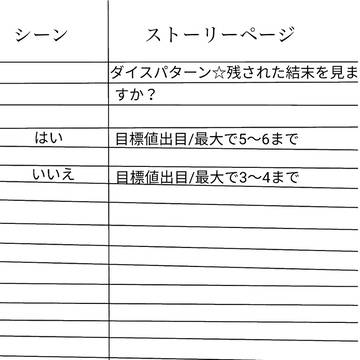 シーン ストーリーページ
ダイスパターン☆残された結末を見ま
すか？
はい 目標値出目/最大で5〜6まで
いいえ 目標値出目/最大で3〜4まで